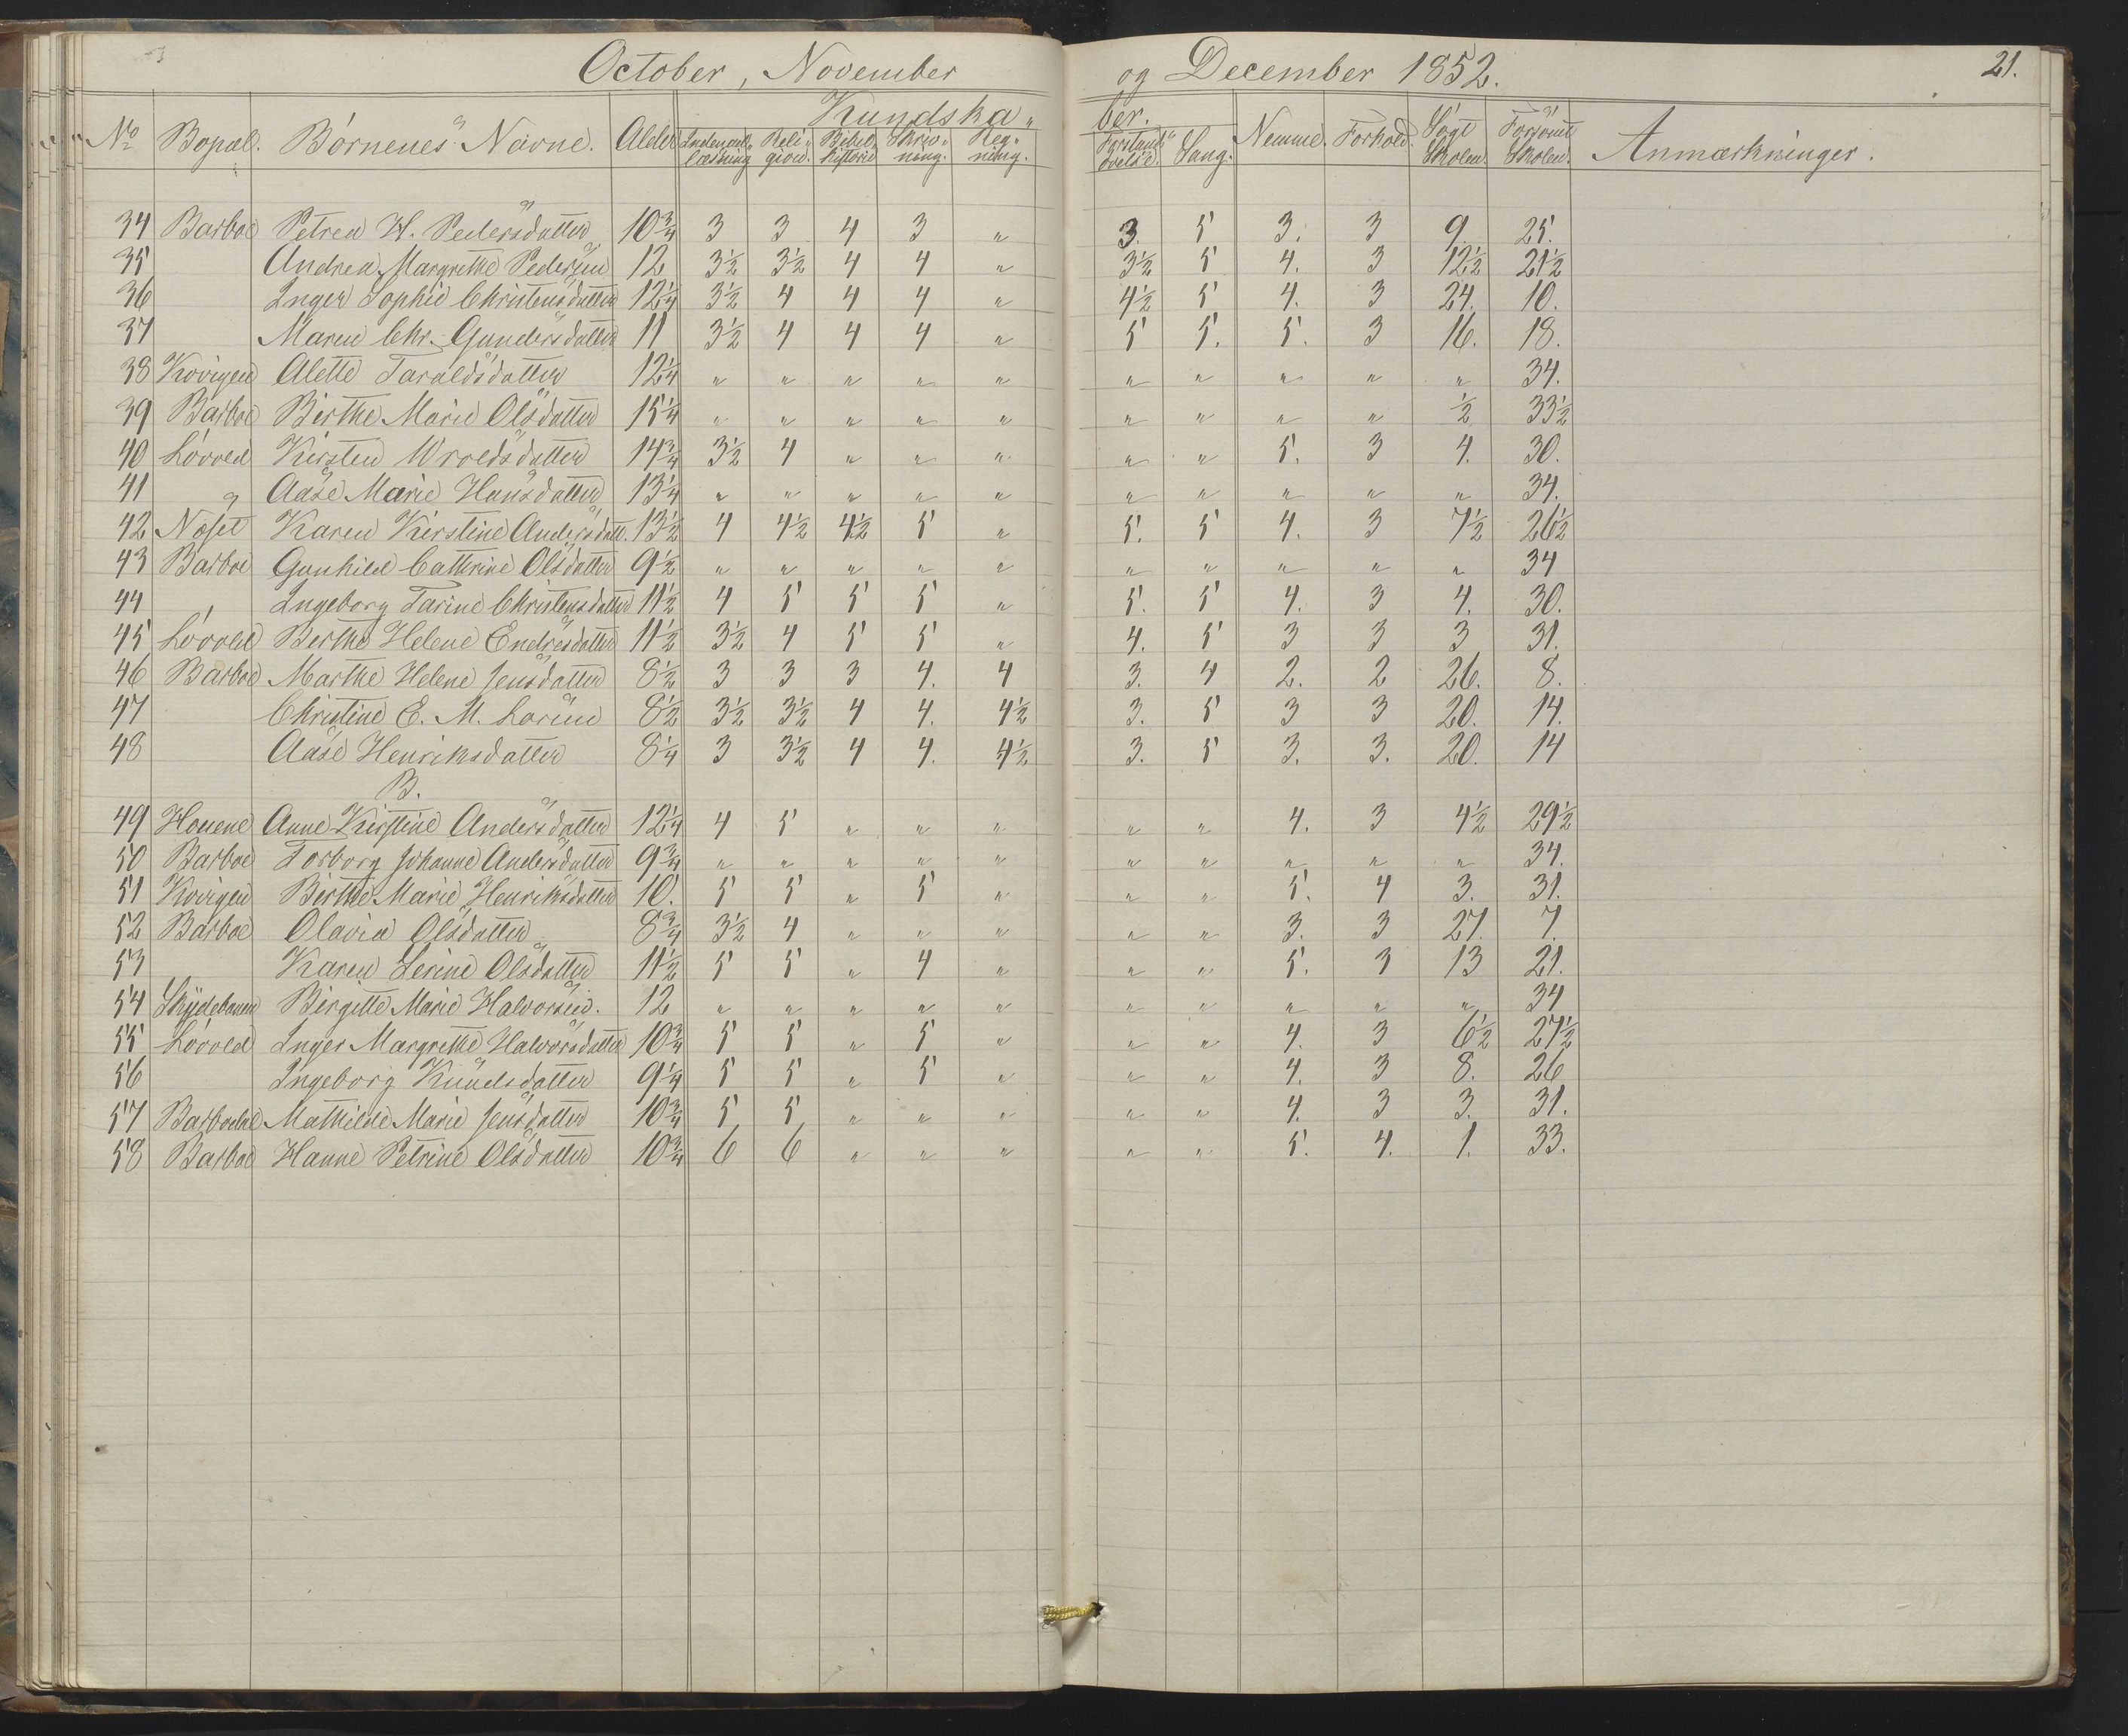 October, November og December 1852. 21.
Kundska„ ber.
No Bopæl. Børnenes Navne. Alder Indenad„ læsning Reli„ gion. Bibel„ historie Skriv„ ning. Reg„ ning. Forstands„ øvelse. Sang. Nemme. Forhold. Søgt Skolen. Forsømt Skolen. Anmærkninger.
34 Barboe Petrea H. Pedersdatter 10¾ 3 3 4 3 „ 3. 5 3. 3 9. 25.
35 Andrea Margrethe Pedersen 12 3½ 3½ 4 4 „ 3½ 5 4. 3 12½ 21½
36 Inger Sophie Christensdatter 12¼ 3½ 4 4 4 „ 4½ 5 4. 3 24. 10.
37 Maren Chr. Gundersdatter 11 3½ 4 4 4 „ 5 5. 5. 3 16. 18.
38 Kovigen Alette Taraldsdatter 12¼ „ „ „ „ „ „ „ „ „ „ 34.
39 Barboe Birthe Marie Olsdatter 15¼ „ „ „ „ „ „ „ „ „ ½ 33½
40 Løvold Kirsten Wroldsdatter 14¾ 3½ 4 „ „ „ „ „ 5. 3 4. 30.
41 „ Aase Marie Hansdatter 13¼ „ „ „ „ „ „ „ „ „ „ 34.
42 Neset Karen Kirstine Andersdatt. 13½ 4 4½ 4½ 5 „ 5. 5 4. 3 7½ 26½
43 Barboe Gunhild Cathrine Olsdatter 9½ „ „ „ „ „ „ „ „ „ „ 34
44 Ingeborg Tarine Christensdatter 11½ 4 5 5 5 „ 5. 5 4. 3 4. 30.
45 Løvold Berthe Helene Endresdatter 11½ 3½ 4 5 5 „ 4. 5 3 3 3 31.
46 Barboe Marthe Helene Jensdatter 8½ 3 3 3 4. 4 3. 4 2. 2 26. 8.
47 Christine E. M. Larsen 8½ 3½ 3½ 4 4. 4½ 3. 5 3 3 20. 14.
48 Aase Henriksdatter 8¼ 3 3½ 4 4. 4½ 3. 5 3. 3. 20. 14
B.
49 Houene Anne Kirstine Andersdatter 12¼ 4 5 „ „ „ „ „ 4. 3 4½ 29½
50 Barboe Torborg Johanne Andersdatter 9¾ „ „ „ „ „ „ „ „ „ „ 34.
51 Kovigen Birthe Marie Henriksdatter 10. 5 5 „ 5 „ „ „ 5. 4 3. 31.
52 Barboe Olavia Olsdatter 8¾ 3½ 4 „ „ „ „ „ 3. 3 27. 7.
53 Karen Serine Olsdatter 11½ 5 5 „ 4 „ „ „ 5. 3 13 21.
54 Skydebanen Birgitte Marie Halvorsen. 12 „ „ „ „ „ „ „ „ „ „ 34
55 Løvold Inger Margrethe Halvorsdatter 10¾ 5 5 „ 5 „ „ „ 4. 3 6½ 27½
56 Ingeborg Knudsdatter 9¼ 5 5 „ 5 „ „ „ 4. 3 8. 26
57 Barbodal Mathilde Marie Jensdatter 10¾ 5 5 „ „ „ „ „ 4. 3 3. 31.
58 Barboe Hanne Petrine Olsdatter 10¾ 6 6 „ „ „ „ „ 5. 4. 1. 33.